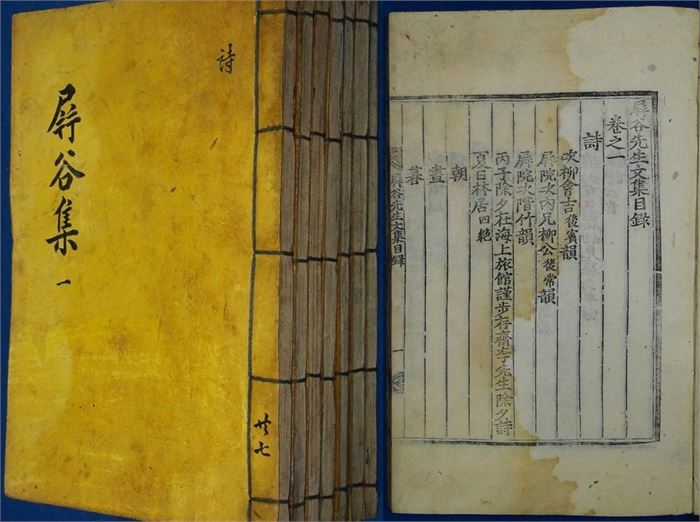 詩
屛谷集 一
共七
屛谷先生文集目錄
卷之一
詩
次柳會吉後賓韻
屛院次內兄柳公後常韻
屛院次階竹韻
丙子除夕在海上旅館謹步存齋李先生除夕詩
夏日林居四絶
朝
晝
暮
屛谷先生文集目錄 一